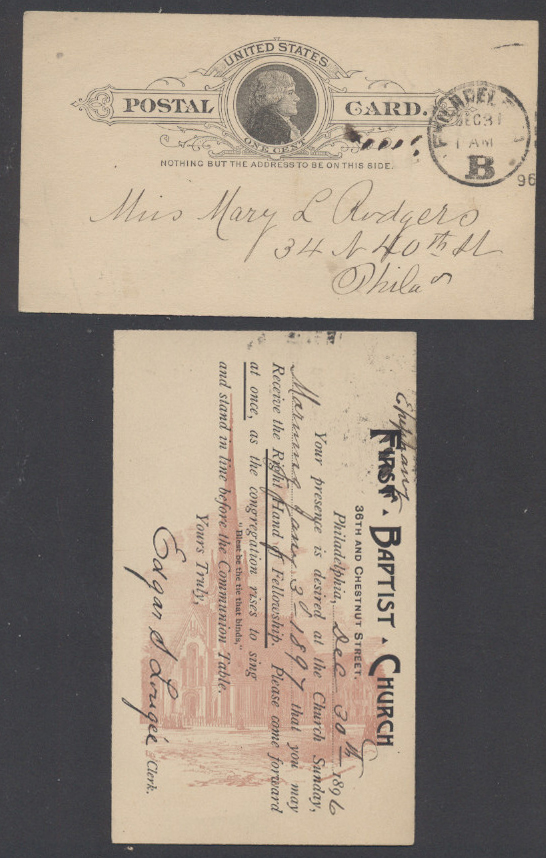 UNITED STATES
POSTAL CARD.
ONE CENT
NOTHING BUT THE ADDRESS TO BE ON THIS SIDE.
PHILADEL
DEC 31
1 AM
B
96
Miss Mary L Rodgers
34 N 40th St
Phila
Epiphany
FIRST BAPTIST CHURCH
36TH AND CHESTNUT STREET.
Philadelphia, Dec 30th 1896
Your presence is desired at the Church Sunday,
Morning Jany 3d 1897 that you may
Receive the Right Hand of Fellowship. Please come forward
at once, as the congregation rises to sing
"Blest be the tie that binds,"
and stand in line before the Communion Table.
Yours Truly,
Edgar S Lougee Clerk.